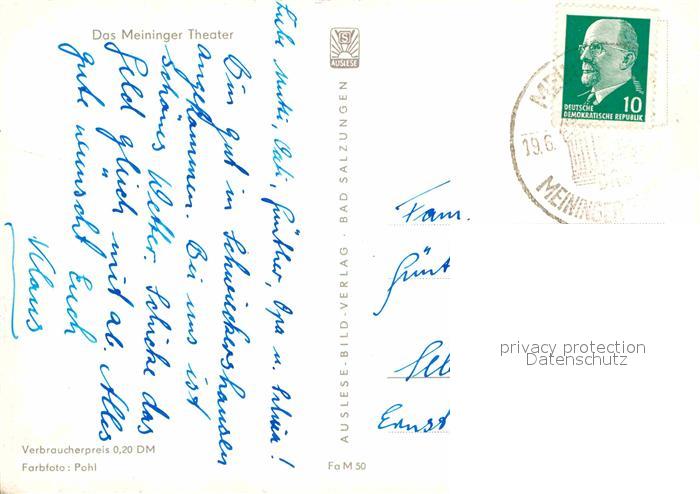 Das Meininger Theater
Liebe Mutti, Vati, Günther, Opa u. Silvia!
Bin gut in Schwickershausen
angekommen. Bei uns ist
schönes Wetter. Schicke das
Geld gleich mit ab. Alles
gute wünscht Euch
Klaus
Verbraucherpreis 0,20 DM
Farbfoto: Pohl
S
AUSLESE
AUSLESE-BILD-VERLAG · BAD SALZUNGEN
Fa M 50
DEUTSCHE
DEMOKRATISCHE REPUBLIK
10
19.6.
MEININGER
Fam.
Günt
Ernst
privacy protection
Datenschutz